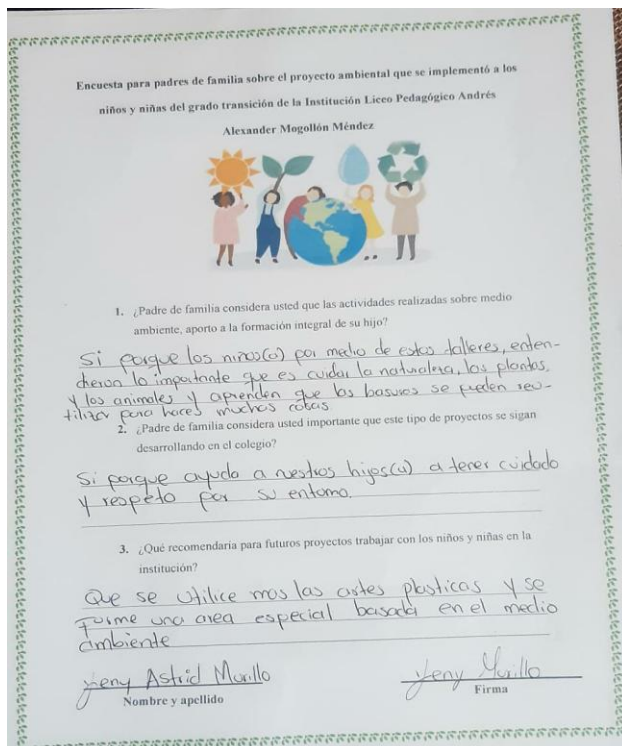 Encuesta para padres de familia sobre el proyecto ambiental que se implementó a los
niños y niñas del grado transición de la Institución Liceo Pedagógico Andrés
Alexander Mogollón Méndez
1. ¿Padre de familia considera usted que las actividades realizadas sobre medio
ambiente, aporto a la formación integral de su hijo?
Si porque los niños(a) por medio de estos talleres, enten-
dieron lo importante que es cuidar la naturaleza, las plantas,
y los animales y aprenden que las basuras se pueden reu-
tilizar para hacer muchas cosas
2. ¿Padre de familia considera usted importante que este tipo de proyectos se sigan
desarrollando en el colegio?
Si porque ayuda a nuestros hijos(a) a tener cuidado
y respeto por su entorno.
3. ¿Qué recomendaria para futuros proyectos trabajar con los niños y niñas en la
institución?
Que se utilice mas las artes plasticas y se
forme una area especial basada en el medio
ambiente
Yeny Astrid Murillo
Yeny Murillo
Nombre y apellido
Firma